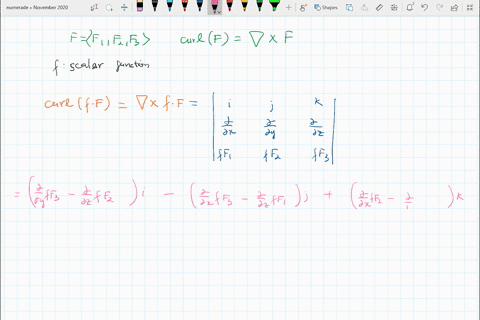 numerade » November 2020
Shapes
F=⟨F₁,F₂,F₃⟩ curl(F) = ∇ × F
f: scalar function
curl(f·F) = ∇ × f·F = | i j k |
| ∂/∂x ∂/∂y ∂/∂z |
| fF₁ fF₂ fF₃ |
= (∂/∂y fF₃ − ∂/∂z fF₂) i − (∂/∂x fF₃ − ∂/∂z fF₁) j + (∂/∂x fF₂ − ∂/ ) k